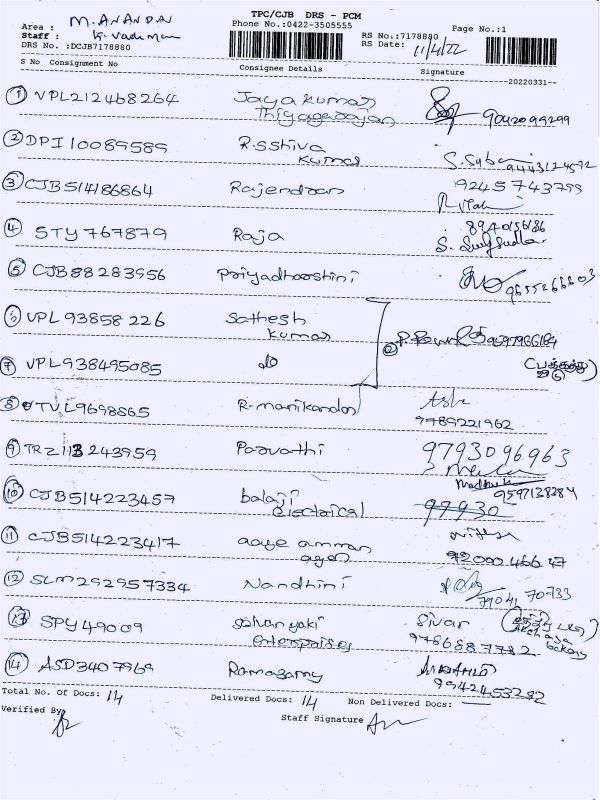 TPC/CJB DRS - PCM
Area : M. ANANDAN
Phone No.:0422-3505555
Page No.:1
Staff :
RS No.:7178880
DRS No. :DCJB7178880
RS Date: 11/4/22
S No Consignment No Consignee Details Signature
20220331
1 VPL212468264 Jaya kumar
Thiyagarajan 9042099299
2 DPI10089589 R.S Shiva
kumar 9443124592
3 CJB514186864 Rajendran 9245743799
4 STY767879 Raja 8940156186
5 CJB88283956 Priyadharshini 9655266603
6 VPL93858226 Sathesh
kumar 9597966184
7 VPL938495085 do
8 TVL9698865 R. manikandan
9789221962
9 TRZ113243959 Parvathi 9793096963
10 CJB514223457 balaji
Electrical 9597138384
11 CJB514223417 aaye amman
agen
12 SLM292957334 Nandhini 79041 70733
13 SPY49009 Sivar
enterprises 9786887782
bakery
14 ASD3407969 Ramasamy
9942453282
Total No. of Docs: 14 Delivered Docs: 14 Non Delivered Docs:
Verified By
Staff Signature